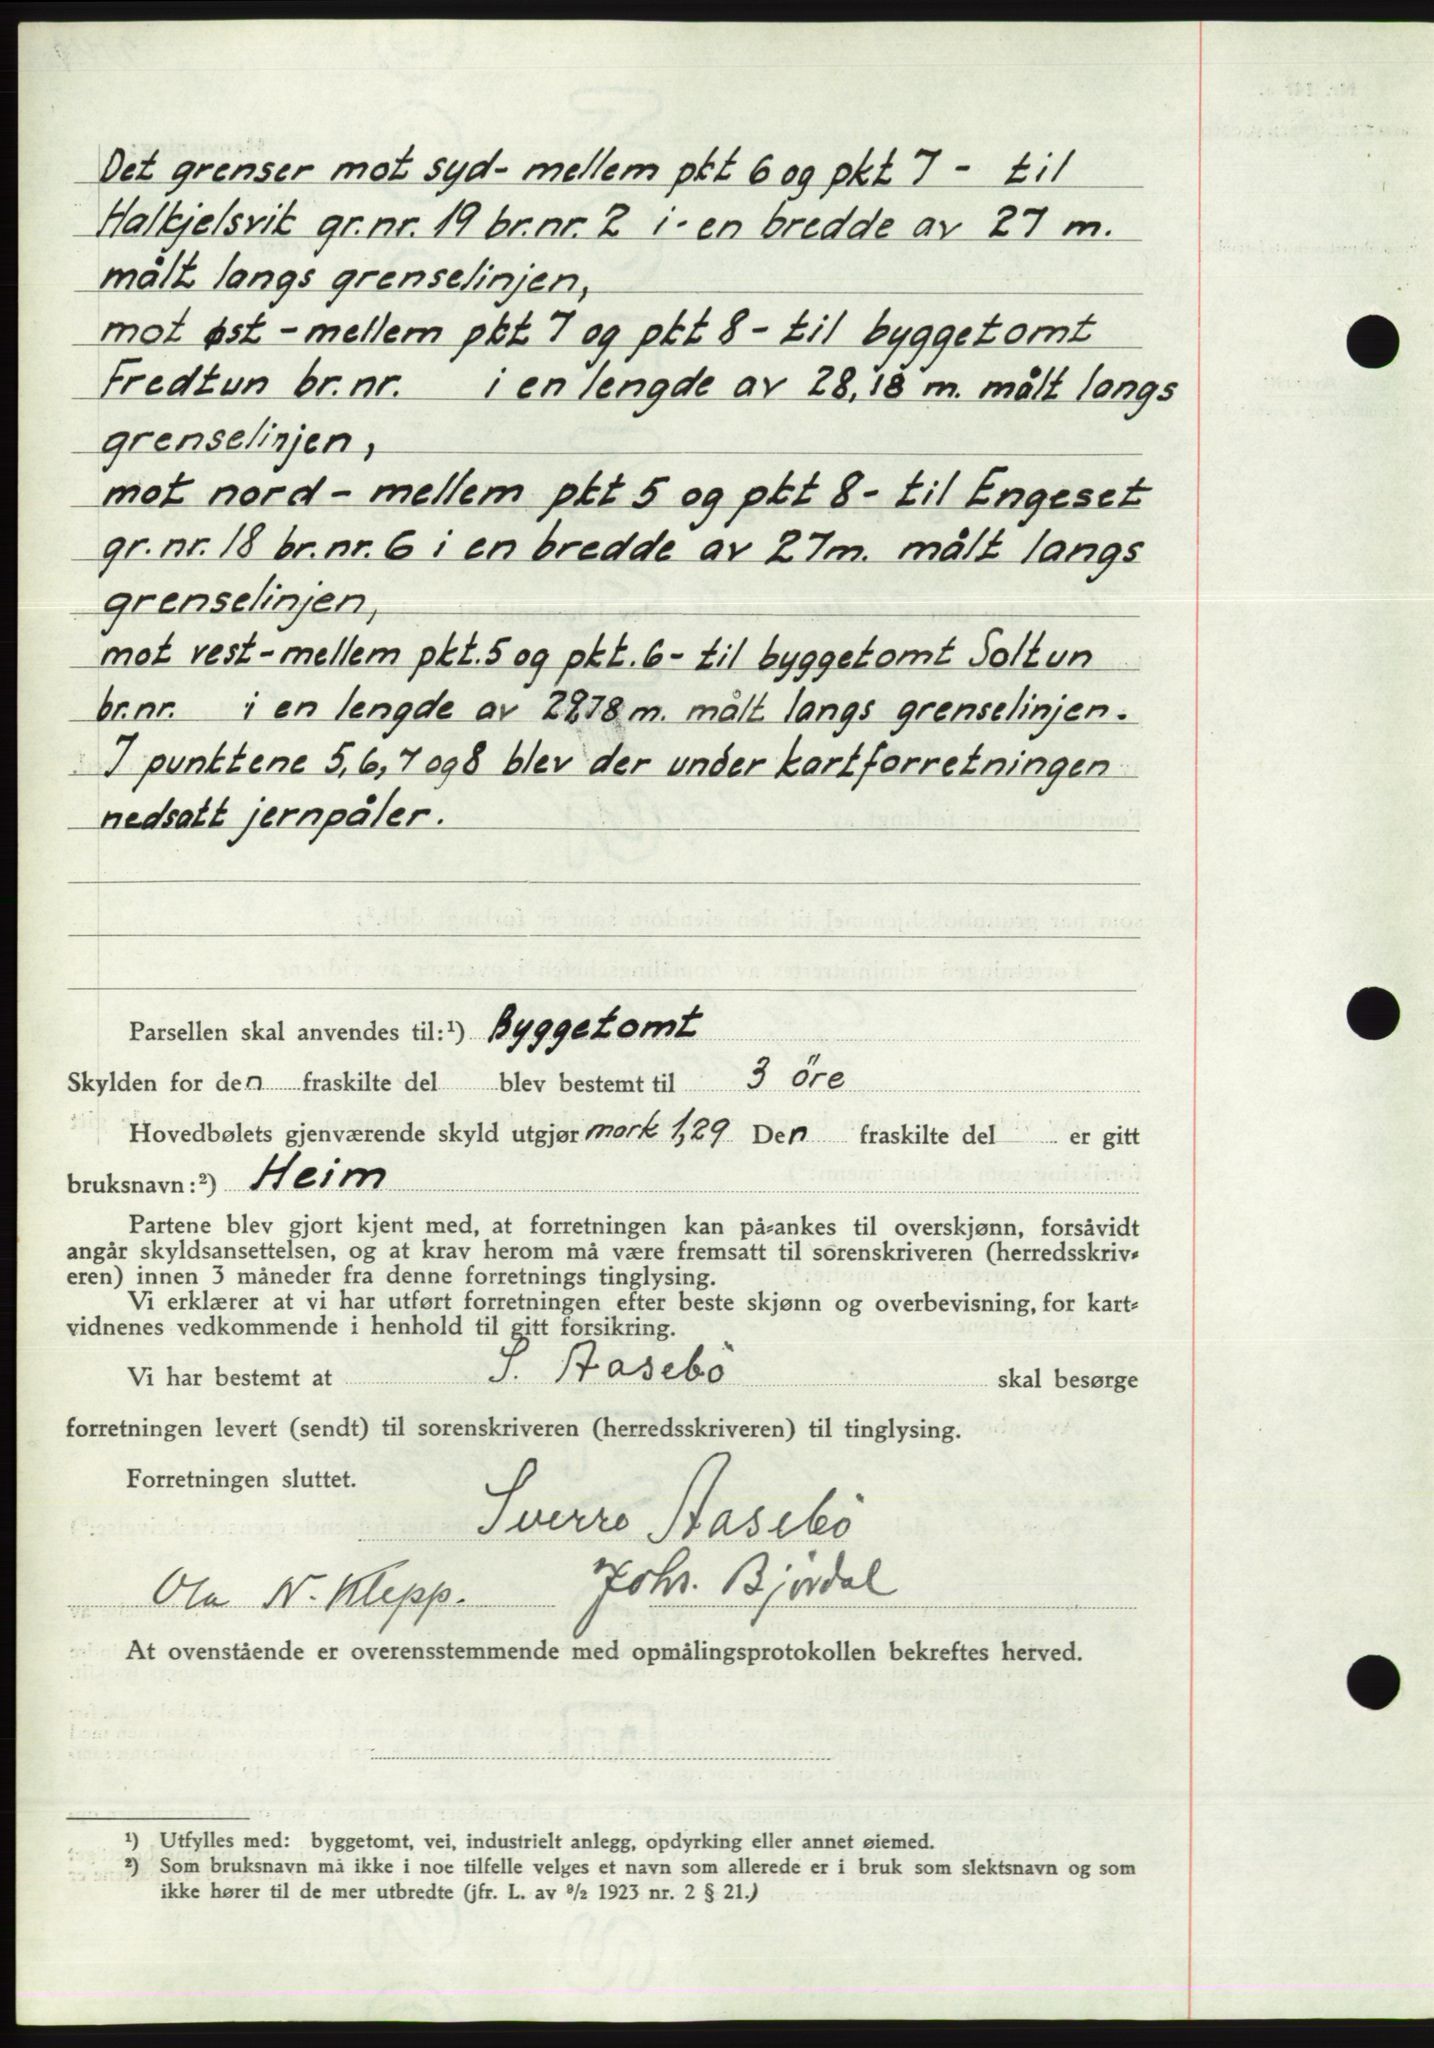 Det grenser mot syd- mellem pkt 6 og pkt 7 - til
Halkjelsvik gr.nr. 19 br.nr. 2 i en bredde av 27 m.
målt langs grenselinjen,
mot øst - mellem pkt 7 og pkt 8 - til byggetomt
Fredtun br.nr. i en lengde av 28,18 m. målt langs
grenselinjen,
mot nord - mellem pkt 5 og pkt 8 - til Engeset
gr.nr. 18 br.nr. 6 i en bredde av 27m. målt langs
grenselinjen,
mot vest - mellem pkt. 5 og pkt. 6 - til byggetomt Soltun
br.nr. i en lengde av m. målt langs grenselinjen.
I punktene 5, 6, 7 og 8 blev der under kartforretningen
nedsatt jernpåler.
Parsellen skal anvendes til:¹) Byggetomt
Skylden for den fraskilte del blev bestemt til 3 öre
Hovedbølets gjenværende skyld utgjør mark 1,29 Den fraskilte del er gitt
bruksnavn:²) Heim
Partene blev gjort kjent med, at forretningen kan på-ankes til overskjønn, forsåvidt
angår skyldsansettelsen, og at krav herom må være fremsatt til sorenskriveren (herredsskriv-
eren) innen 3 måneder fra denne forretnings tinglysing.
Vi erklærer at vi har utført forretningen efter beste skjønn og overbevisning, for kart-
vidnenes vedkommende i henhold til gitt forsikring.
Vi har bestemt at S. Aasebö skal besørge
forretningen levert (sendt) til sorenskriveren (herredsskriveren) til tinglysing.
Forretningen sluttet.
Sverre Aasebö
Ola N. Klepp. Johs. Björdal
At ovenstående er overensstemmende med opmålingsprotokollen bekreftes herved.
¹) Utfylles med: byggetomt, vei, industrielt anlegg, opdyrking eller annet øiemed.
²) Som bruksnavn må ikke i noe tilfelle velges et navn som allerede er i bruk som slektsnavn og som
ikke hører til de mer utbredte (jfr. L. av 9/2 1923 nr. 2 § 21.)